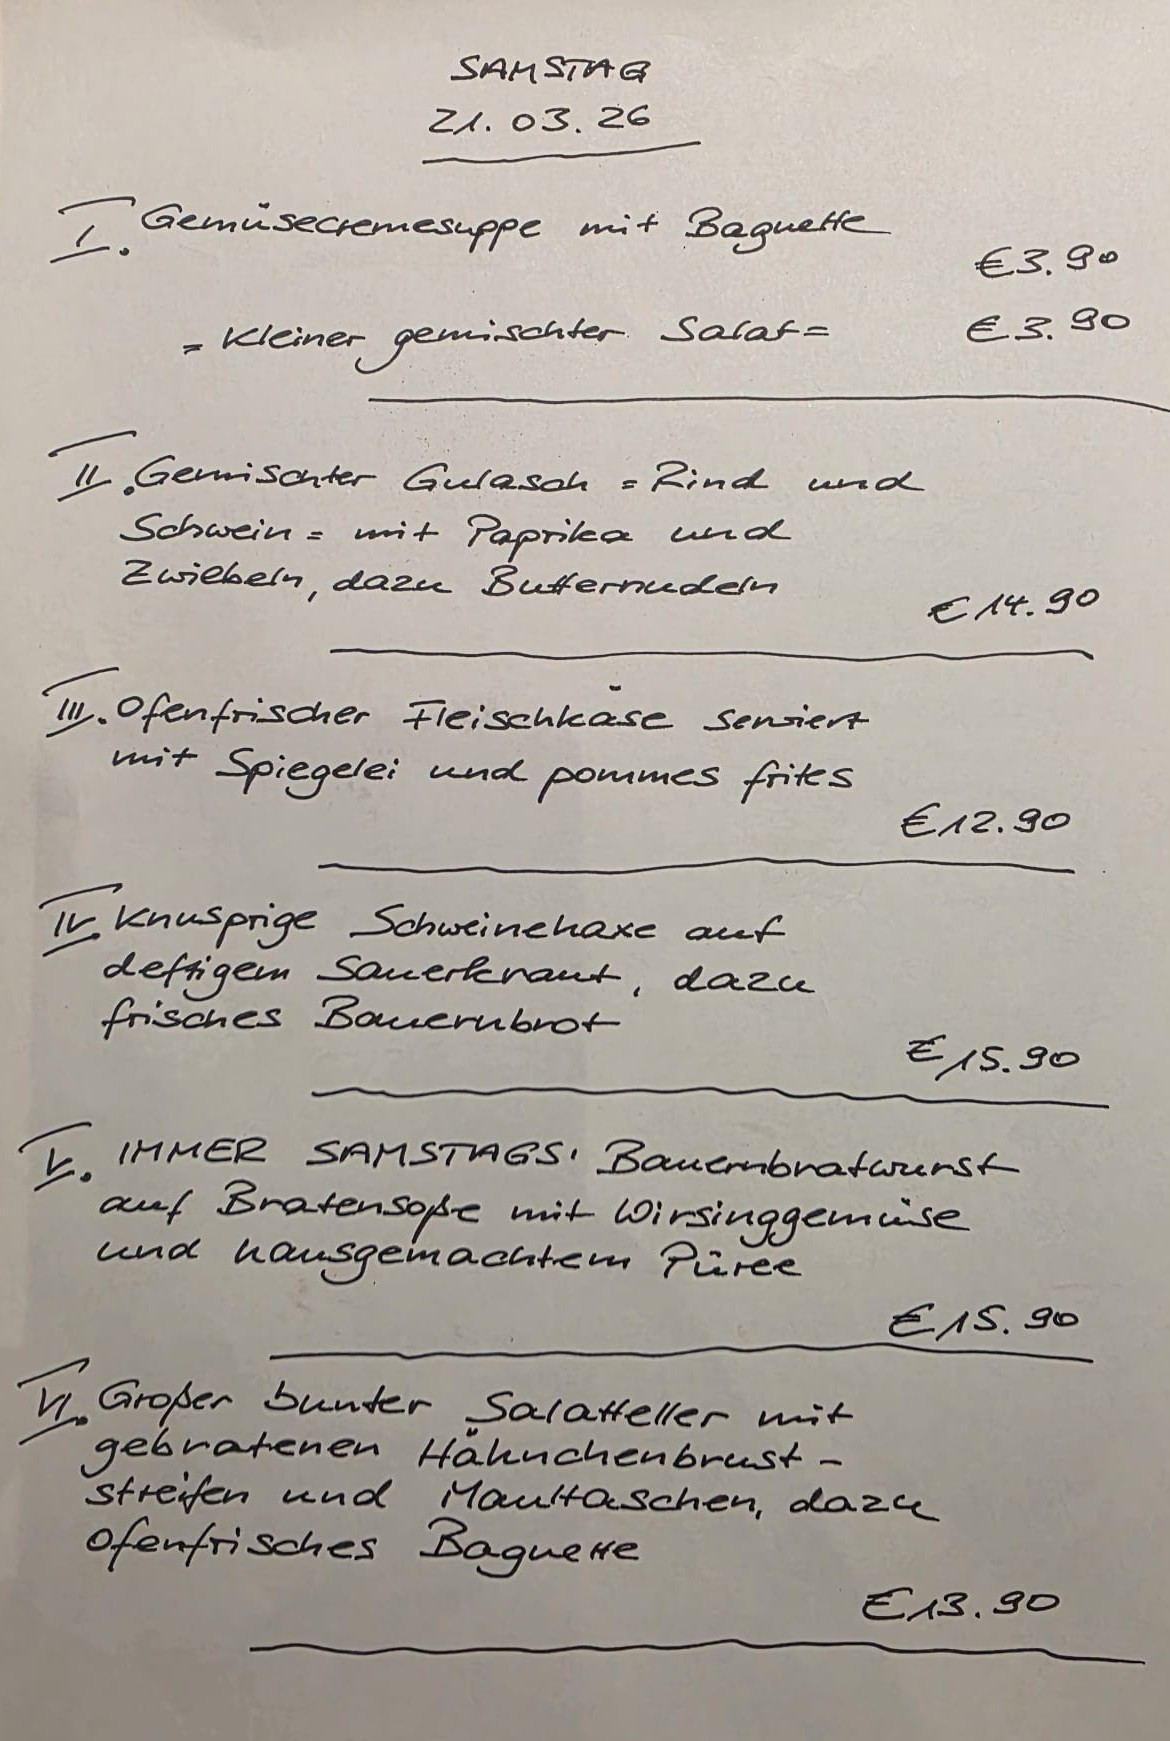 SAMSTAG
21.03.26
I. Gemüsecremesuppe mit Baguette
€3.90
= Kleiner gemischter Salat = €3.90
II. Gemischter Gulasch = Rind und
Schwein = mit Paprika und
Zwiebeln, dazu Butternudeln
€14.90
III. Ofenfrischer Fleischkäse serviert
mit Spiegelei und pommes frites
€12.90
IV. Knusprige Schweinehaxe auf
deftigem Sauerkraut, dazu
frisches Bauernbrot
€15.90
V. IMMER SAMSTAGS: Bauernbratwurst
auf Bratensoße mit Wirsinggemüse
und hausgemachtem Püree
€15.90
VI. Großer bunter Salatteller mit
gebratenen Hähnchenbrust-
streifen und Maultaschen, dazu
ofenfrisches Baguette
€13.90